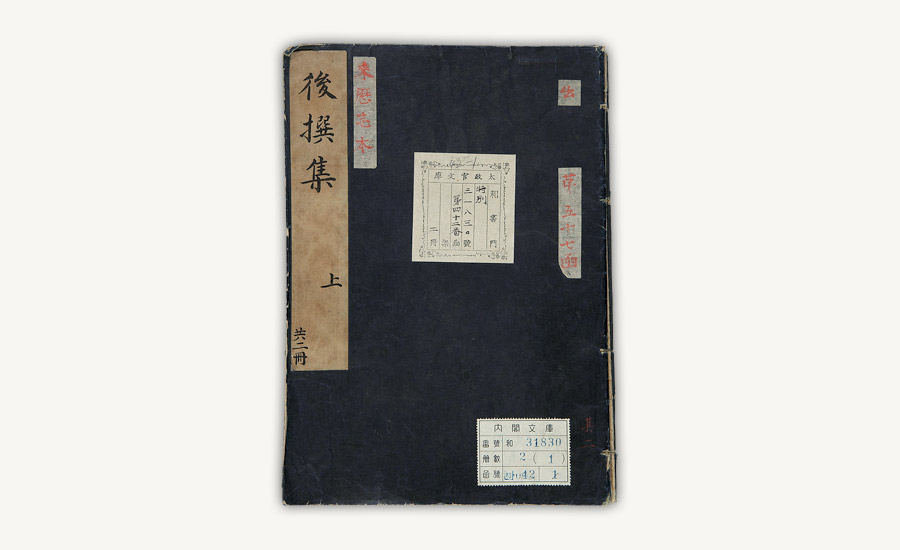 後撰集
上
共二冊
来歴志本
出
第五十七函
太政官文庫
和書門
特別
三一八三〇號
第四十二番
二冊
内閣文庫
番號 和 31830
冊數 2(1)
函號 42 1
其二